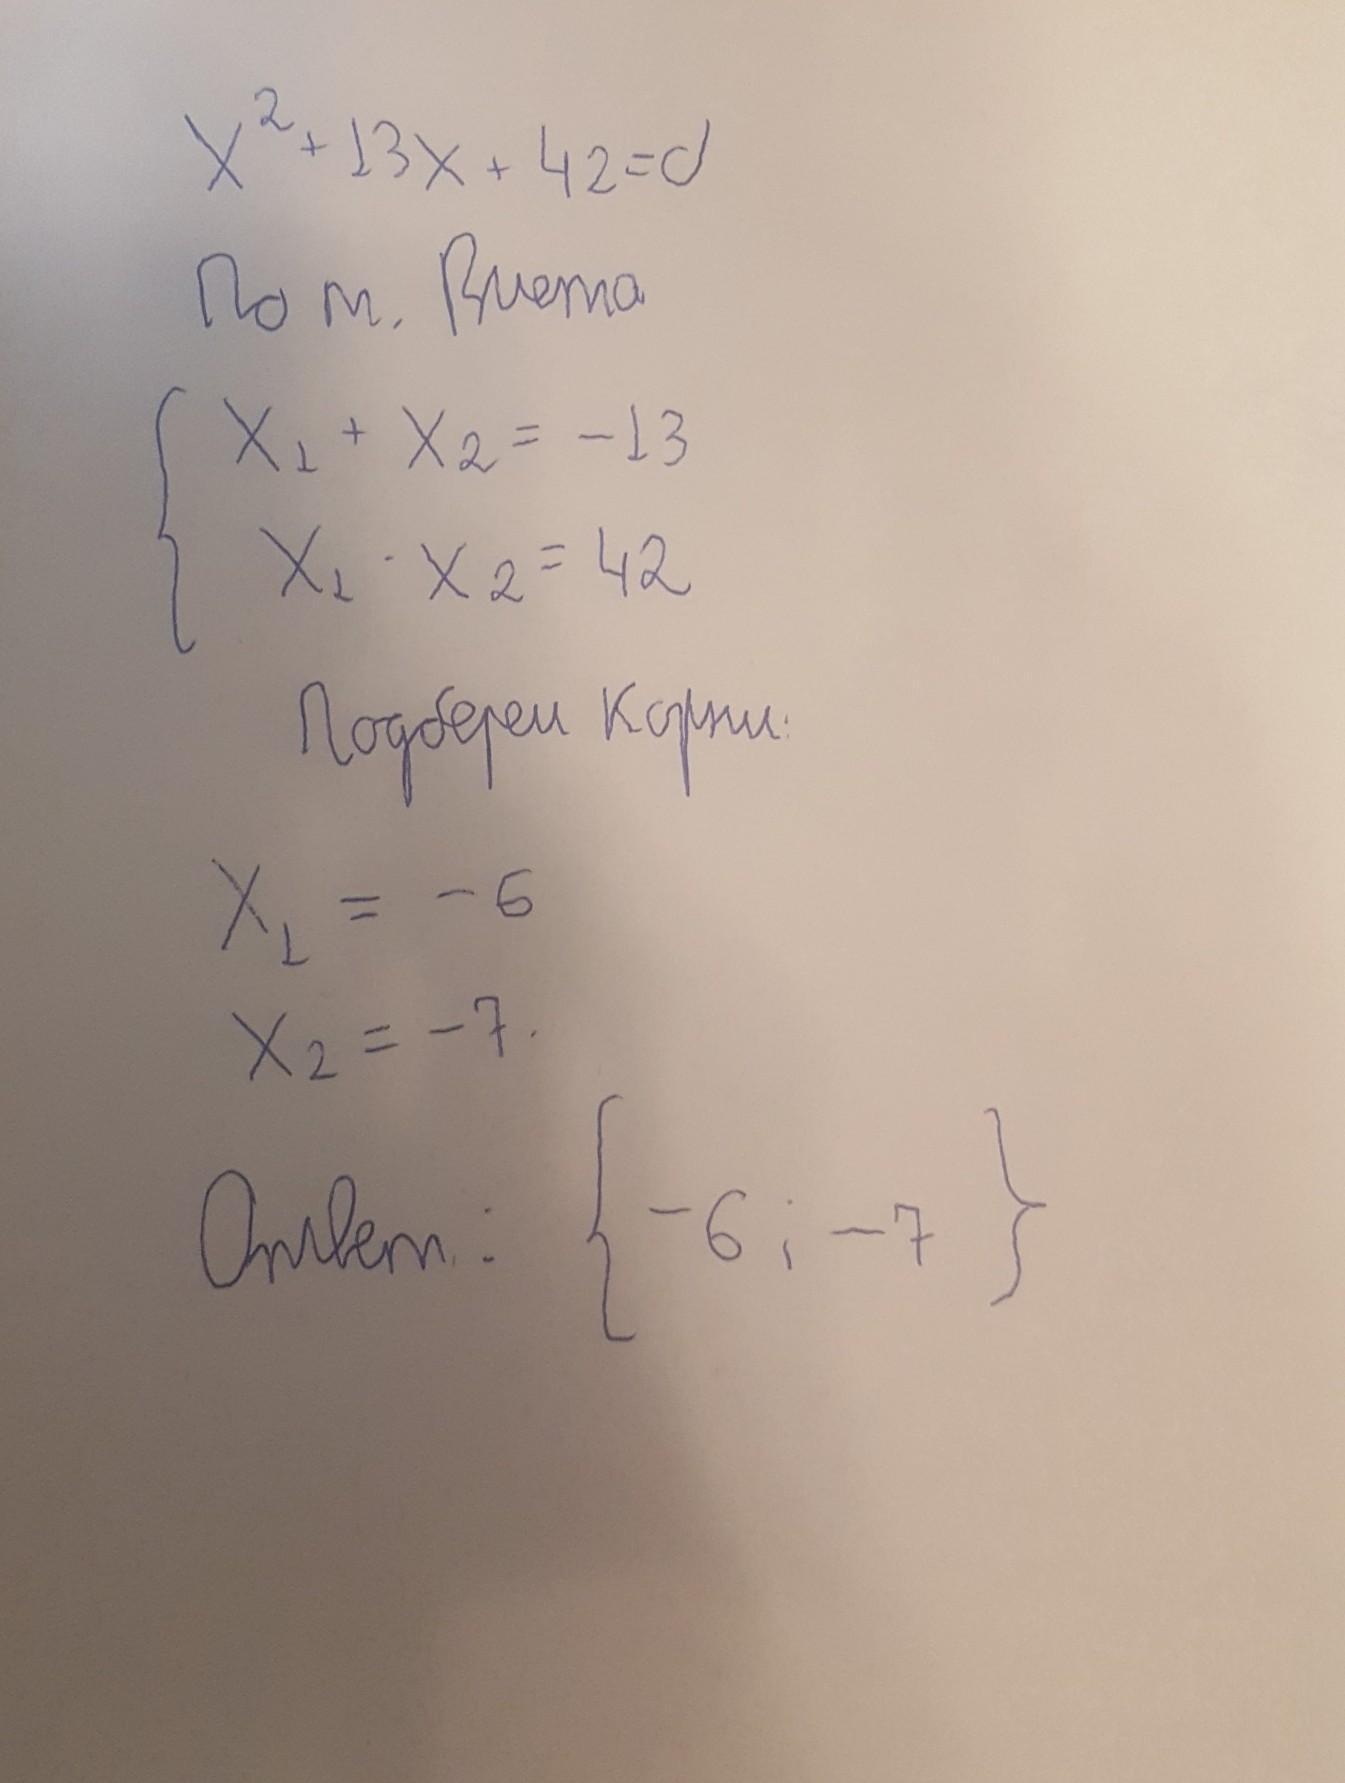 x² + 13x + 42 = 0
По т. Виета
{ x₁ + x₂ = -13
x₁ · x₂ = 42
Подберем корни:
x₁ = -6
x₂ = -7.
Ответ: { -6 ; -7 }